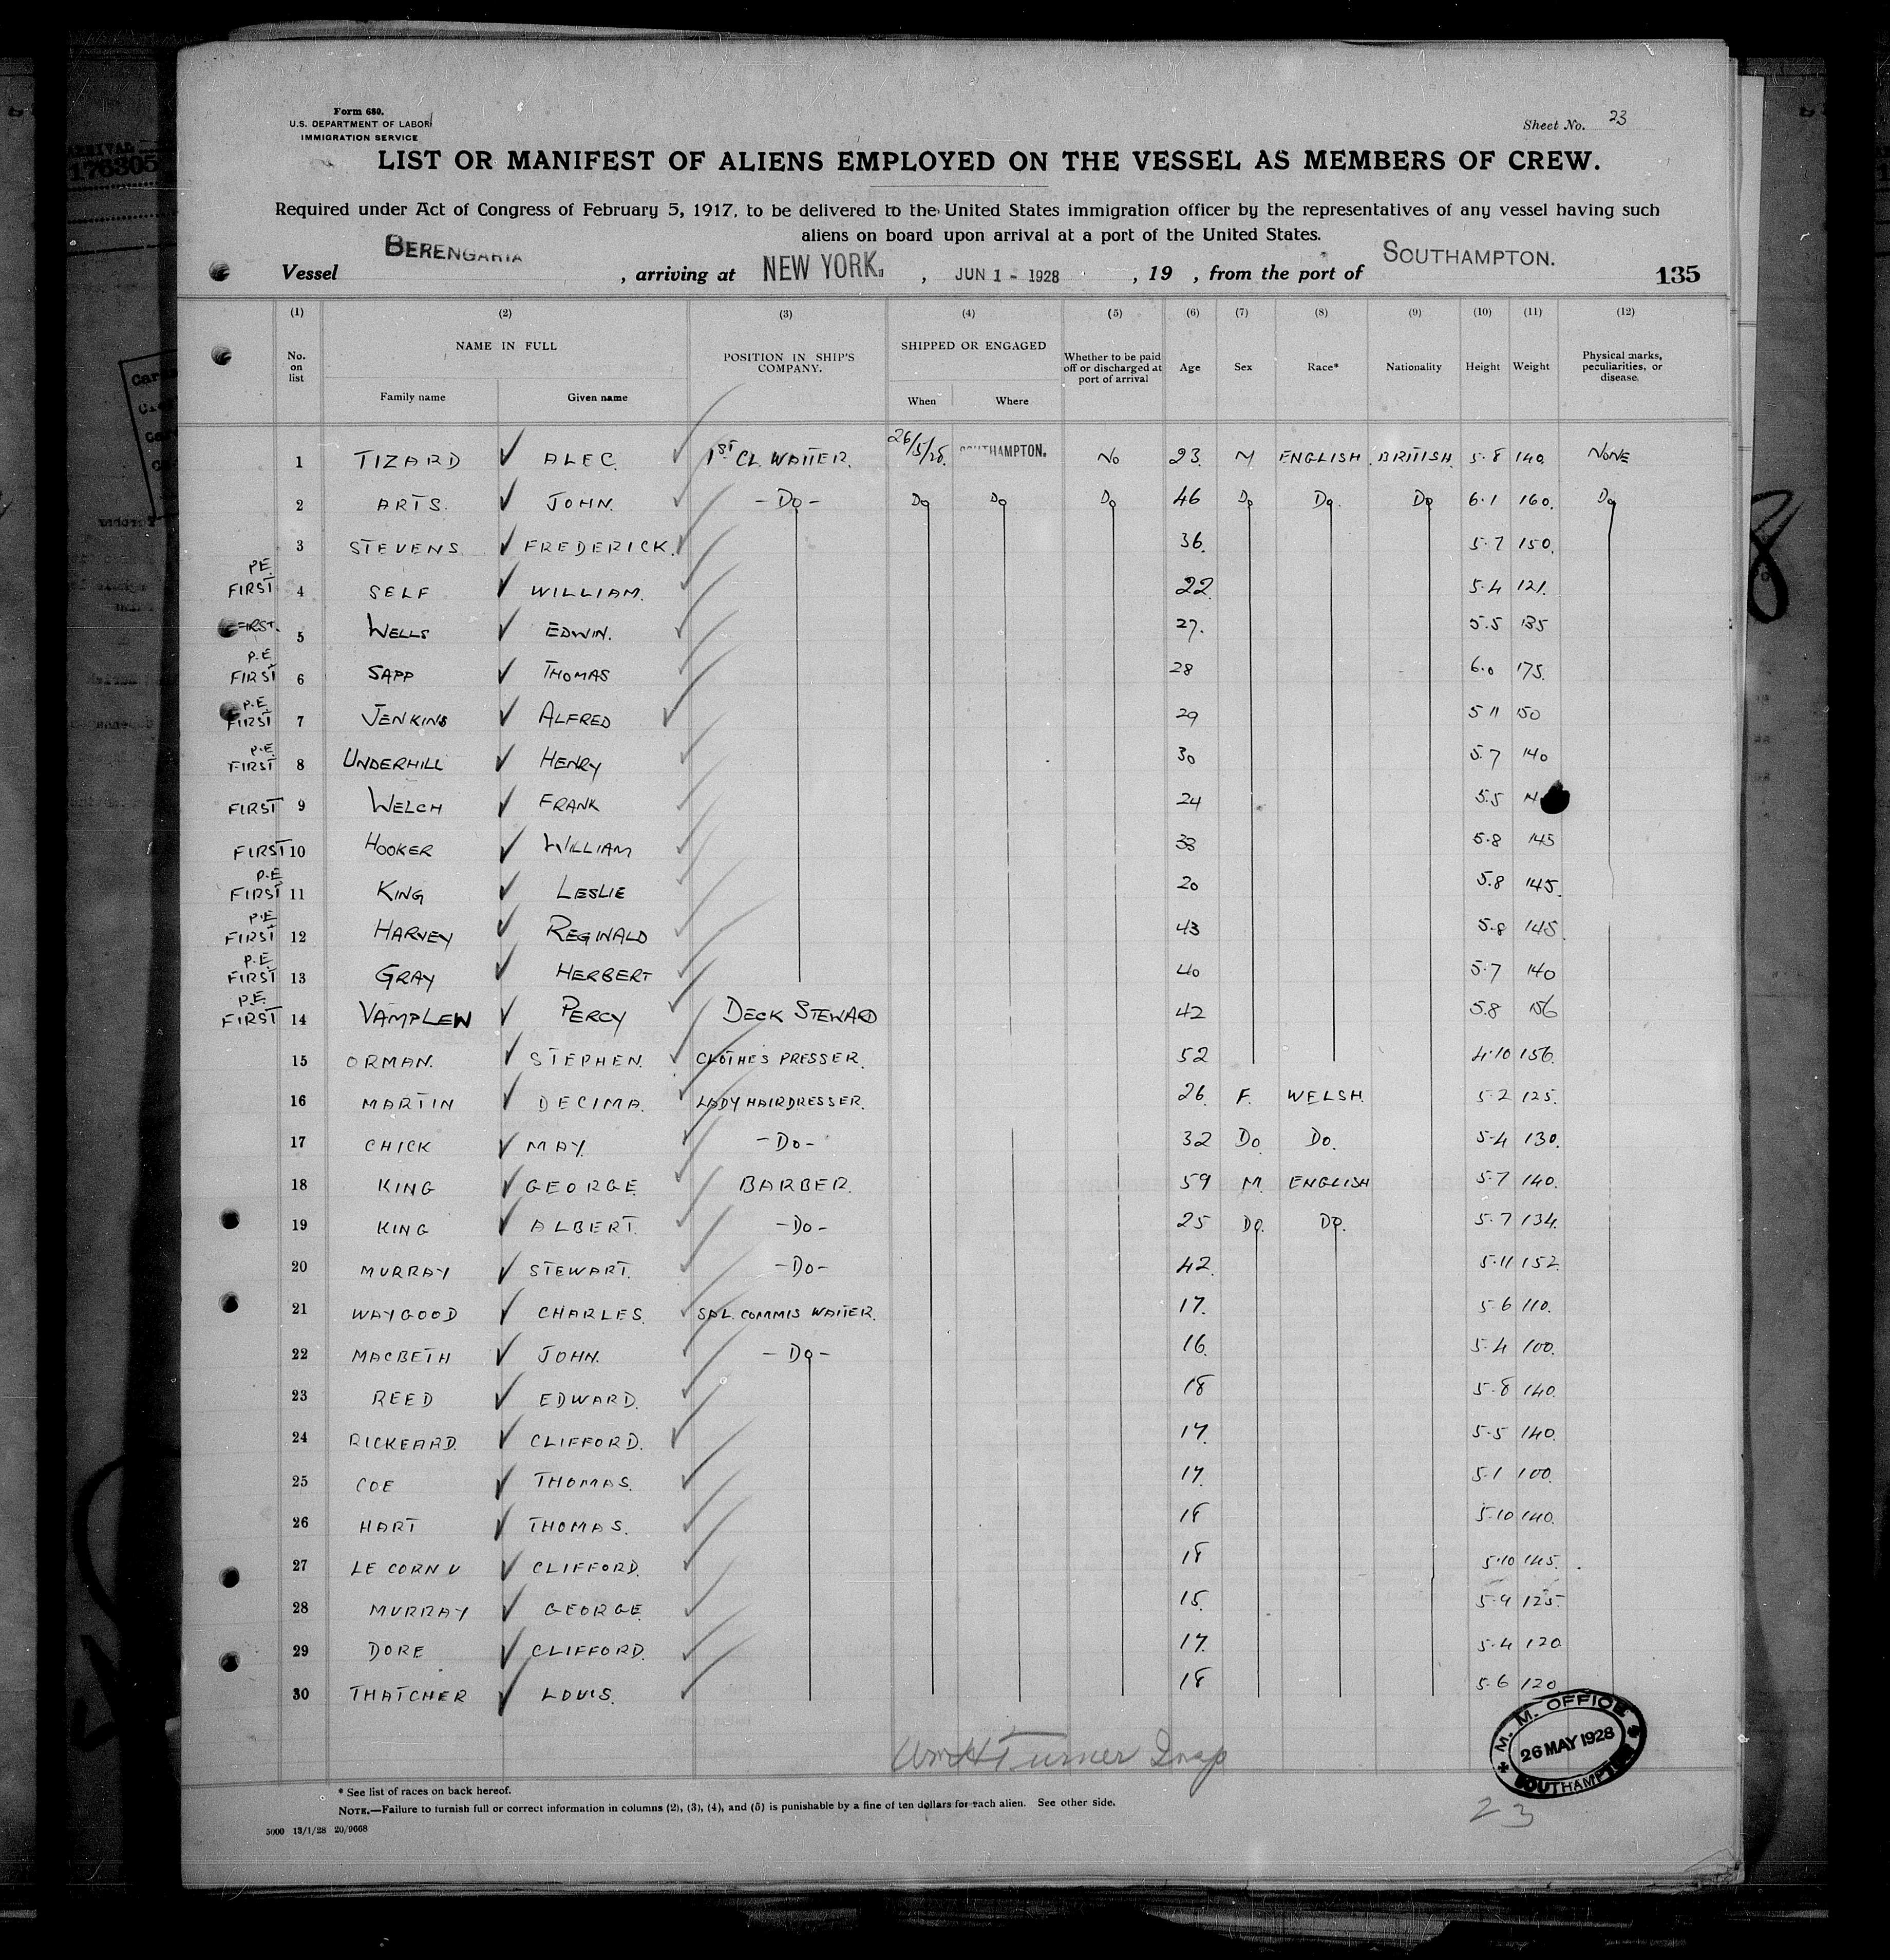 Form 680.
U.S. DEPARTMENT OF LABOR
IMMIGRATION SERVICE
Sheet No. 23
LIST OR MANIFEST OF ALIENS EMPLOYED ON THE VESSEL AS MEMBERS OF CREW.
Required under Act of Congress of February 5, 1917, to be delivered to the United States immigration officer by the representatives of any vessel having such
aliens on board upon arrival at a port of the United States.
Vessel BERENGARIA, arriving at NEW YORK., JUN 1 - 1928, 19 , from the port of SOUTHAMPTON. 135
(1) (2) (3) (4) (5) (6) (7) (8) (9) (10) (11) (12)
No. on list NAME IN FULL POSITION IN SHIP'S COMPANY. SHIPPED OR ENGAGED Whether to be paid off or discharged at port of arrival Age Sex Race* Nationality Height Weight Physical marks, peculiarities, or disease.
Family name Given name When Where
1 TIZARD ✓ ALEC. 1ST CL. WAITER. 26/5/28. SOUTHAMPTON. No 23. M ENGLISH. BRITISH. 5.8 140. NONE
2 ARTS. ✓ JOHN. - Do - Do Do Do 46 Do Do. Do 6.1 160. Do
3 STEVENS ✓ FREDERICK. 36. 5.7 150.
P.E. FIRST 4 SELF ✓ WILLIAM. 22. 5.4 121.
FIRST. 5 WELLS ✓ EDWIN. 27. 5.5 135
P.E. FIRST 6 SAPP ✓ THOMAS 28 6.0 175.
P.E. FIRST 7 JENKINS ✓ ALFRED 29 5 11 150
P.E. FIRST 8 UNDERHILL ✓ HENRY 30 5.7 140
FIRST 9 WELCH ✓ FRANK 24 5.5
FIRST 10 HOOKER ✓ WILLIAM 33 5.8 145
P.E. FIRST 11 KING ✓ LESLIE 20 5.8 145.
P.E. FIRST 12 HARVEY ✓ REGINALD 43 5.8 145.
P.E. FIRST 13 GRAY ✓ HERBERT 40 5.7 140
P.E. FIRST 14 VAMPLEW ✓ PERCY DECK STEWARD 42 5.8 156
15 ORMAN. ✓ STEPHEN. CLOTHES PRESSER. 52 4.10 156.
16 MARTIN ✓ DECIMA. LADY HAIRDRESSER. 26. F. WELSH. 5.2 125.
17 CHICK ✓ MAY. - Do - 32 Do Do. 5.4 130.
18 KING ✓ GEORGE. BARBER. 59 M. ENGLISH 5.7 140.
19 KING ✓ ALBERT. - Do - 25 Do. Do. 5.7 134.
20 MURRAY ✓ STEWART. - Do - 42. 5.11 152
21 WAYGOOD ✓ CHARLES. SAL. COMMIS WAITER. 17. 5.6 110.
22 MACBETH ✓ JOHN. - Do - 16. 5.4 100.
23 REED ✓ EDWARD. 18 5.8 140.
24 RICKEARD. ✓ CLIFFORD. 17. 5.5 140.
25 COE ✓ THOMAS. 17. 5.1 100.
26 HART ✓ THOMAS. 18 5.10 140.
27 LE CORNU ✓ CLIFFORD. 18 5.10 145.
28 MURRAY ✓ GEORGE. 15. 5.9 125.
29 DORE ✓ CLIFFORD. 17. 5.4 120.
30 THATCHER ✓ LOUIS. 18 5.6 120
Wm H Turner Insp
M. M. OFFICE
26 MAY 1928
SOUTHAMPTON
* See list of races on back hereof.
NOTE.—Failure to furnish full or correct information in columns (2), (3), (4), and (5) is punishable by a fine of ten dollars for each alien. See other side.
23
5000 13/1/28 20/9668
176305